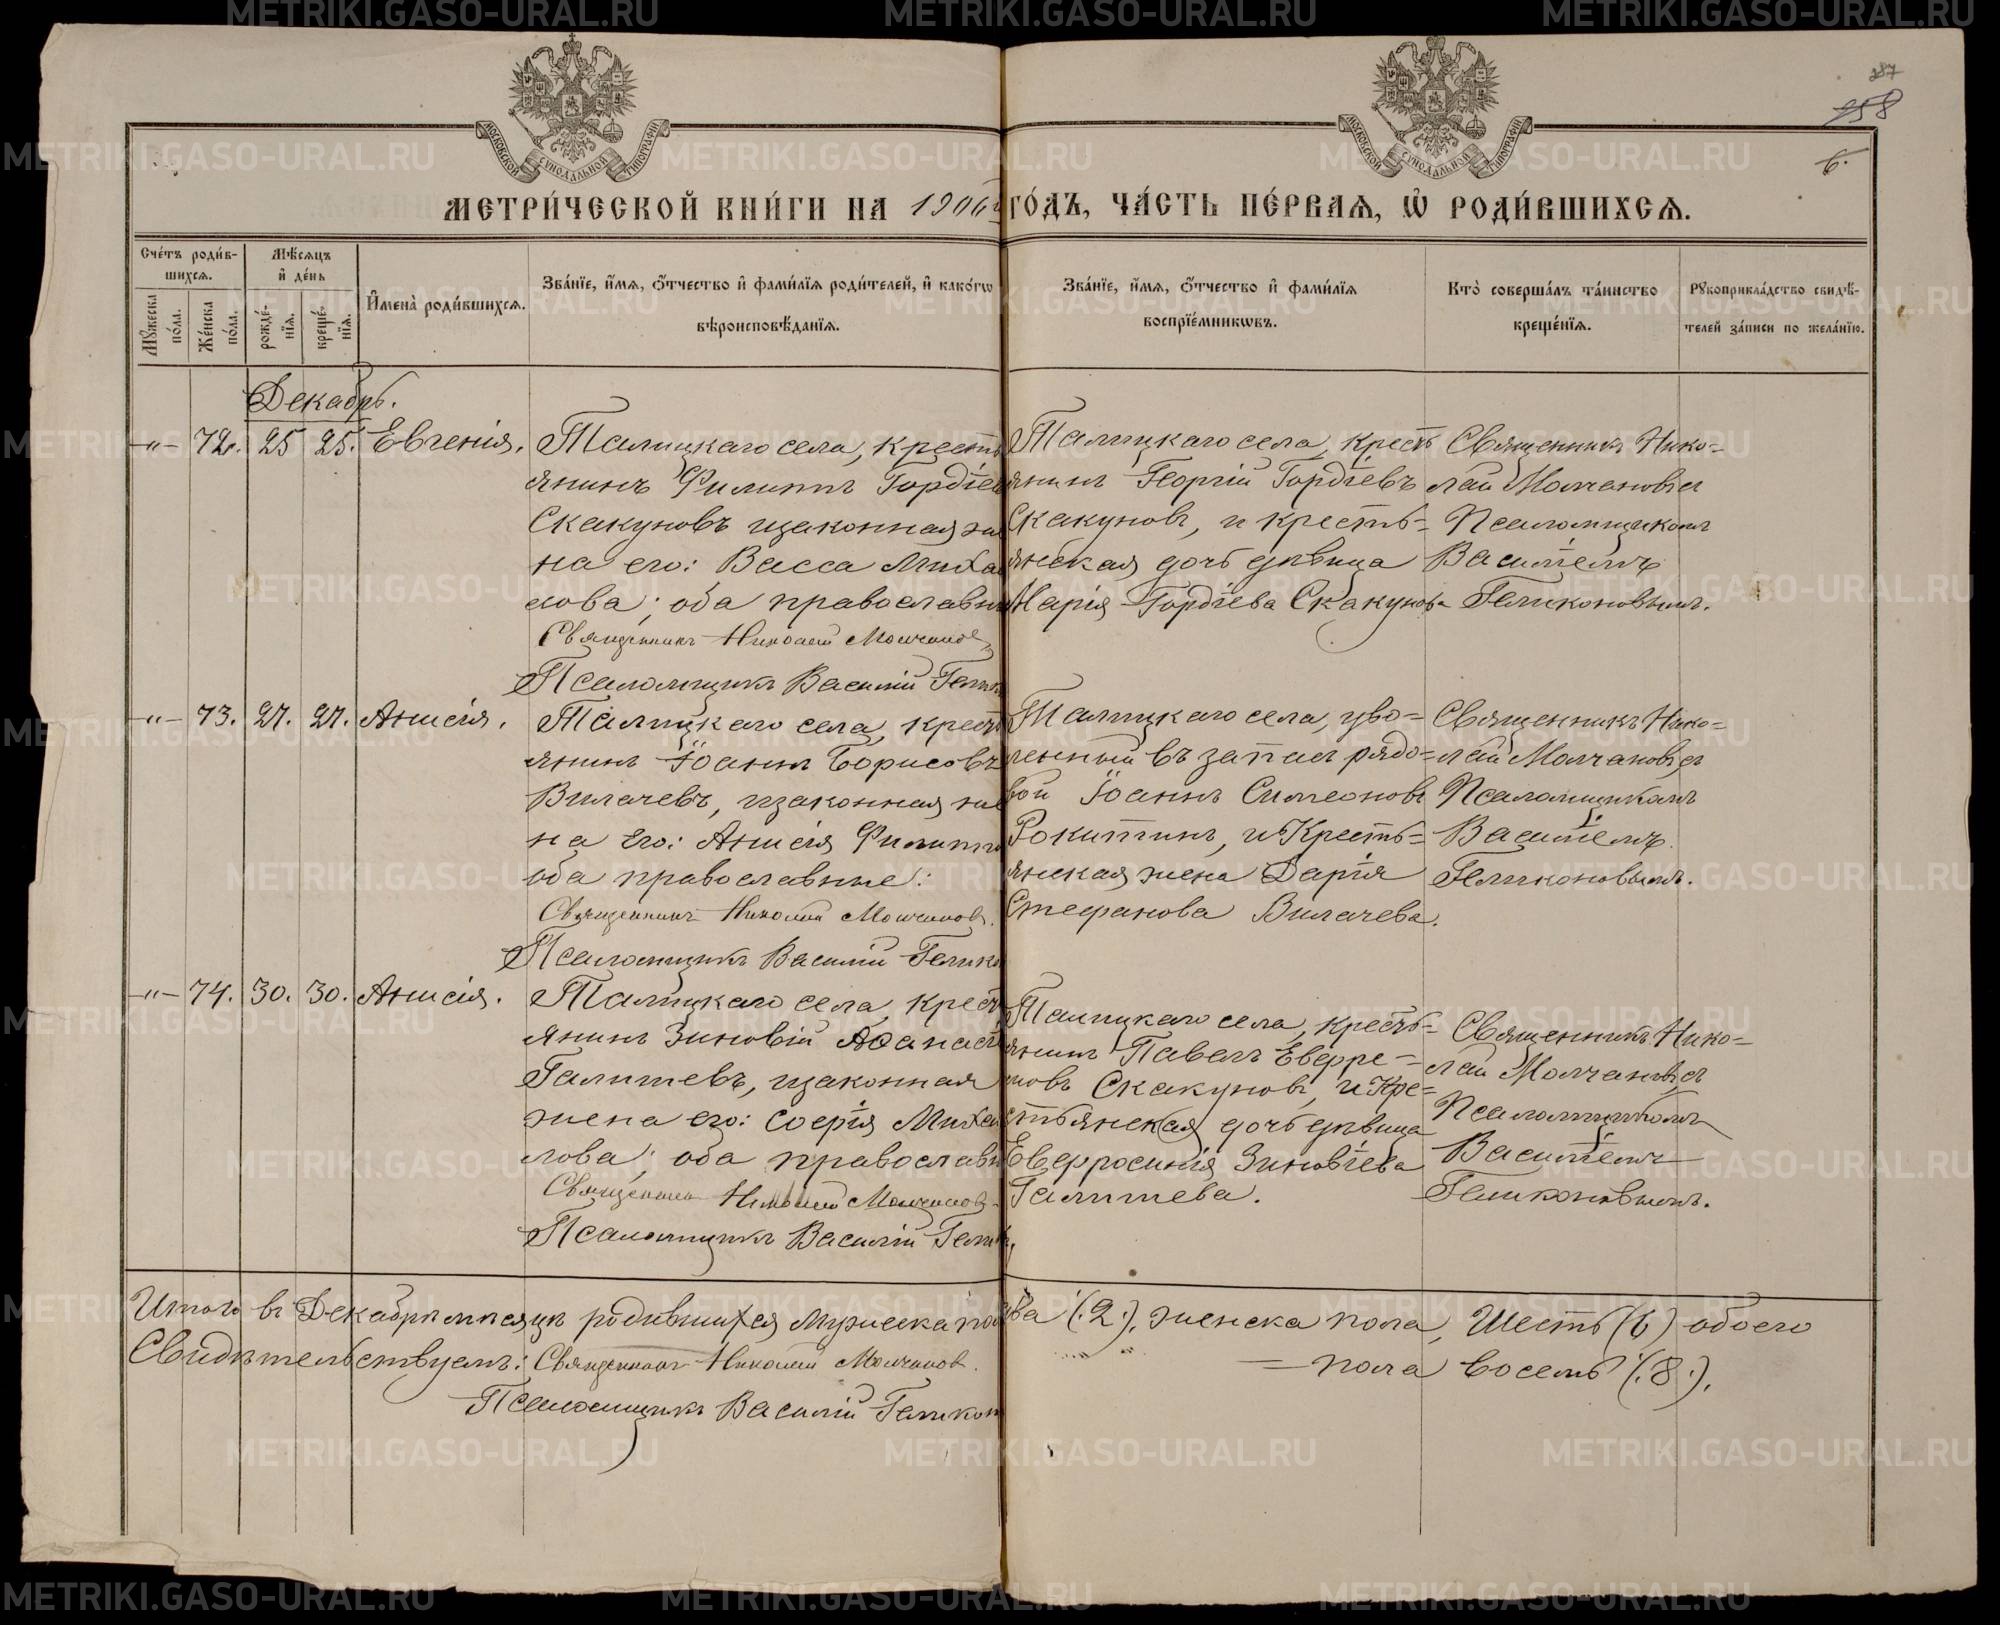 METRIKI.GASO-URAL.RU
187
258
6.
МОСКОВСКОЙ СѴНОДАЛЬНОЙ ТИПОГРАФІИ
МОСКОВСКОЙ СѴНОДАЛЬНОЙ ТИПОГРАФІИ
МЕТРИ́ЧЕСКОЙ КНИ́ГИ НА 1906й ГО́ДЪ, ЧА́СТЬ ПЕ́РВАѦ, Ѡ РОДИ́ВШИХСѦ.
Сче́тъ роди́в-
шихсѧ.
Мꙋжеска по́ла.
Же́нска по́ла.
Мѣ́сѧцъ
и де́нь
рожде́-
нїѧ.
креще́-
нїѧ.
Имена̀ роди́вшихсѧ.
Зва́нїе, и́мѧ, о́тчество и фами́лїѧ роди́телей, и како́гѡ
вѣроисповѣ́данїѧ.
Зва́нїе, и́мѧ, о́тчество и фами́лїѧ
воспрїе́мникѡвъ.
Кто̀ соверша́лъ та́инство
креще́нїѧ.
Рꙋкоприкла́дство свидѣ́-
телей за́писи по жела́нїю.
Декабрь.
-"- 72. 25 25. Евгенія.
Талицкаго села, кресть
янинъ Филиппъ Гордіев
Скакуновъ изаконная же
на его: Васса Миха
лова; оба православн
Священникъ Николай Молчанов
Псаломщикъ Василій Гелик
Талицкаго села, кресть
янинъ Георгій Гордіевъ
Скакуновъ, и кресть=
янская дочь дѣвица
Марія Гордіева Скакунова
Священникъ Нико=
лай Молчановъ съ
Псаломщикомъ
Василіемъ
Геликоновымъ.
-"- 73. 27. 27. Анисія.
Талицкаго села, кресть
янинъ Іоаннъ Борисовъ
Вилачевъ, изаконная же
на его: Анисія Филиппо
оба православные:
Священникъ Николай Молчанов.
Псаломщикъ Василій Гелико
Талицкаго села, уво=
ленный въ запасъ рядо=
вой Іоаннъ Симеоновъ
Рокитинъ, и Кресть=
янская жена Дарія
Стефанова Вилачева.
Священникъ Нико=
лай Молчановъ съ
Псаломщикомъ
Василіемъ
Геликоновымъ.
-"- 74. 30. 30. Анисія.
Талицкаго села, кресть
янинъ Зиновій Аѳанась
Галишевъ, изаконная
жена его: Софія Михаи
лова; оба православн
Священникъ Николай Молчанов
Псаломщикъ Василій Гелик
Талицкаго села, кресть=
янинъ Павелъ Евфре=
мовъ Скакуновъ, и Кре=
стьянская дочь дѣвица
Евфросинія Зиновіева
Галишева.
Священникъ Нико=
лай Молчановъ съ
Псаломщикомъ
Василіемъ
Геликоновымъ.
Итого въ Декабрѣ мѣсяцѣ родившихся мужеска пола два (.2.), женска пола, Шесть (6) обоего
пола восемь (.8.).
Свидѣтельствуемъ: Священникъ Николай Молчанов.
Псаломщикъ Василій Геликон